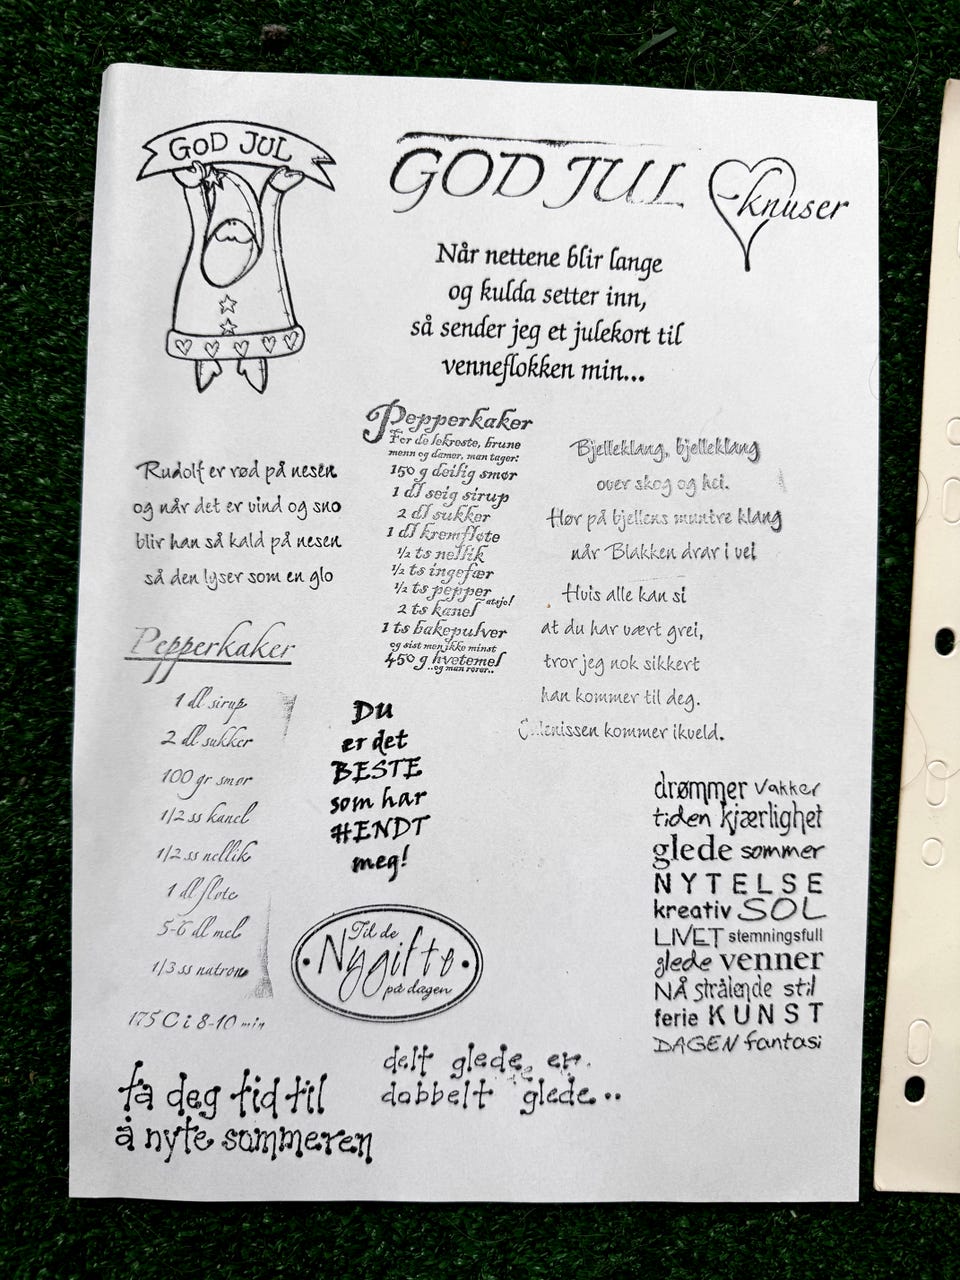 GOD JUL
GOD JUL
knuser
Når nettene blir lange
og kulda setter inn,
så sender jeg et julekort til
venneflokken min...
Pepperkaker
For de lekreste, brune
menn og damer, man tager:
150 g deilig smør
1 dl seig sirup
2 dl sukker
1 dl kremfløte
1/2 ts nellik
1/2 ts ingefær
1/2 ts pepper
atsjo!
2 ts kanel
1 ts bakepulver
og sist men ikke minst
450 g hvetemel
..og man rører..
Rudolf er rød på nesen
og når det er vind og sno
blir han så kald på nesen
så den lyser som en glo
Bjelleklang, bjelleklang
over skog og hei.
Hør på bjellens muntre klang
når Blakken drar i vei
Hvis alle kan si
at du har vært grei,
tror jeg nok sikkert
han kommer til deg.
Julenissen kommer ikveld.
Pepperkaker
1 dl sirup
2 dl sukker
100 gr smør
1/2 ss kanel
1/2 ss nellik
1 dl fløte
5-6 dl mel
1/3 ss natron
175 C i 8-10 min
Du
er det
BESTE
som har
HENDT
meg!
Til de
Nygifte
på dagen
drømmer vakker
tiden kjærlighet
glede sommer
NYTELSE
kreativ SOL
LIVET stemningsfull
glede venner
NÅ strålende stil
ferie KUNST
DAGEN fantasi
ta deg tid til
å nyte sommeren
delt glede er
dobbelt glede...